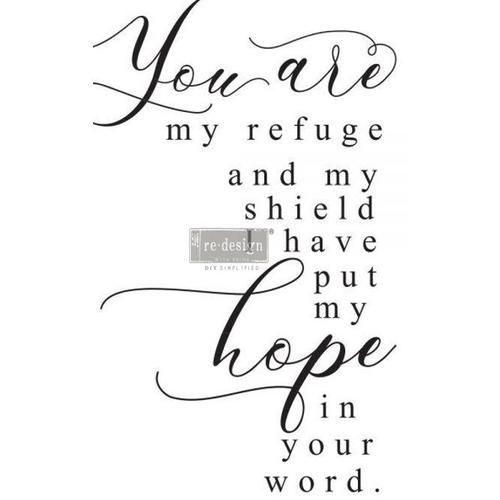 You are
my refuge
and my
shield
I have
put
my
hope
in
your
word.
re·design
WITH PRIMA
DIY SIMPLIFIED